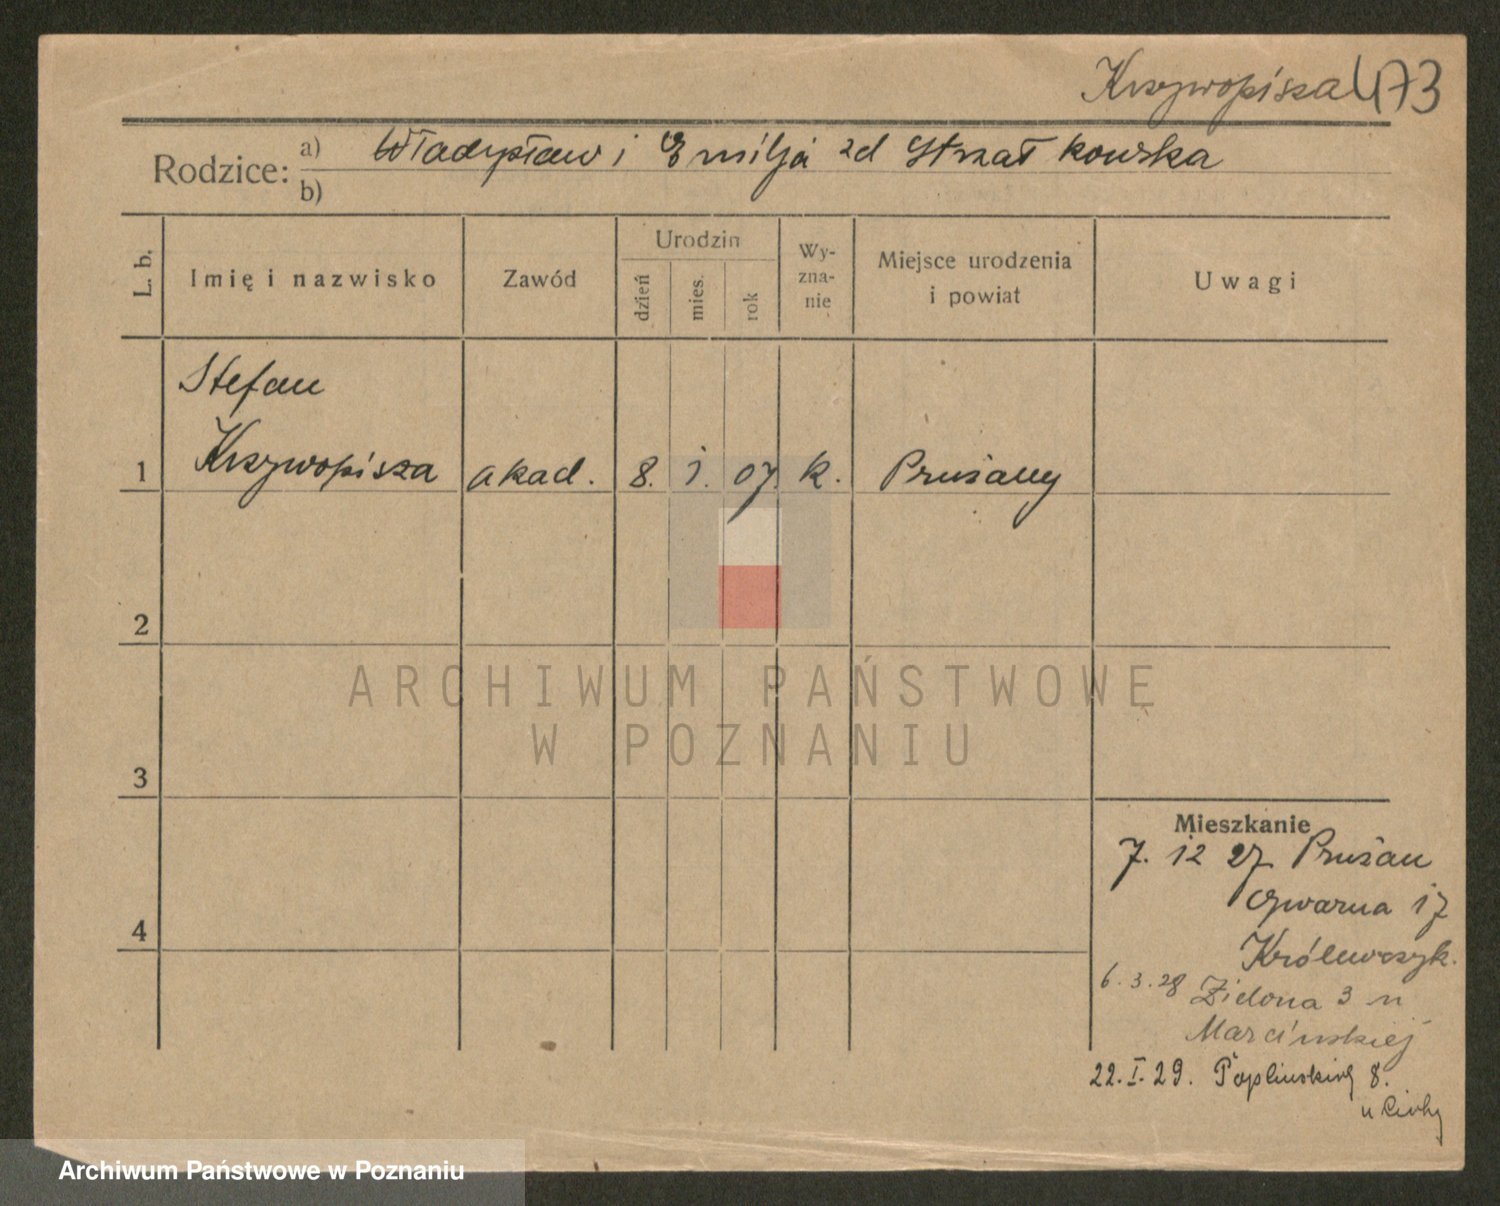 Krzywopisza 473
Rodzice: a) Władysław i Emilja zd Strzałkowska
b)
L. b.
Imię i nazwisko
Zawód
Urodzin
dzień
mies.
rok
Wy-
zna-
nie
Miejsce urodzenia
i powiat
Uwagi
Stefan
1 Krzywopisza akad. 8. 1. 07. k. Prużany
2
3
4
Mieszkanie
7. 12 27 Prużan
Ogwarna 17
Królewczyk.
6. 3. 28 Zielona 3 u
Marcińskiej
22. I. 29. Poplińskich 8.
u Cichy
ARCHIWUM PAŃSTWOWE
W POZNANIU
Archiwum Państwowe w Poznaniu